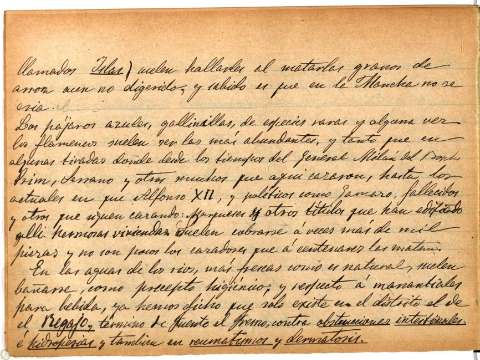 llamados Islas) suelen hallarles al matarlas granos de
arroz aun no digeridos y sabido es que en la Mancha no se
cria.
Los pájaros azules, gallinillas, de especies raras y alguna vez
los flamencos suelen ser las más abundantes, y tanto que en
algunas tiradas donde desde los tiempos del General Milans del Bosch
Prim, Serrano y otros muchos que aqui cazaron, hasta los
actuales en que Alfonso XII, y políticos como Gamazo, fallecidos
y otros que siguen cazando. Marqueses y otros títulos que han edificado
alli hermosas viviendas suelen cobrarse á veces mas de mil
piezas y no son pocos los cazadores que á centenares las matan.
En las aguas de los rios, mas frescas como es natural, suelen
bañarse, como precepto higiénico; y respecto á manantiales
para bebida, ya hemos dicho que solo existe en el distrito el de
el Regajo, termino de Puerto el contra obstrucciones intestinales
é hidropesias y tambien en reumatismos y dermatosis.